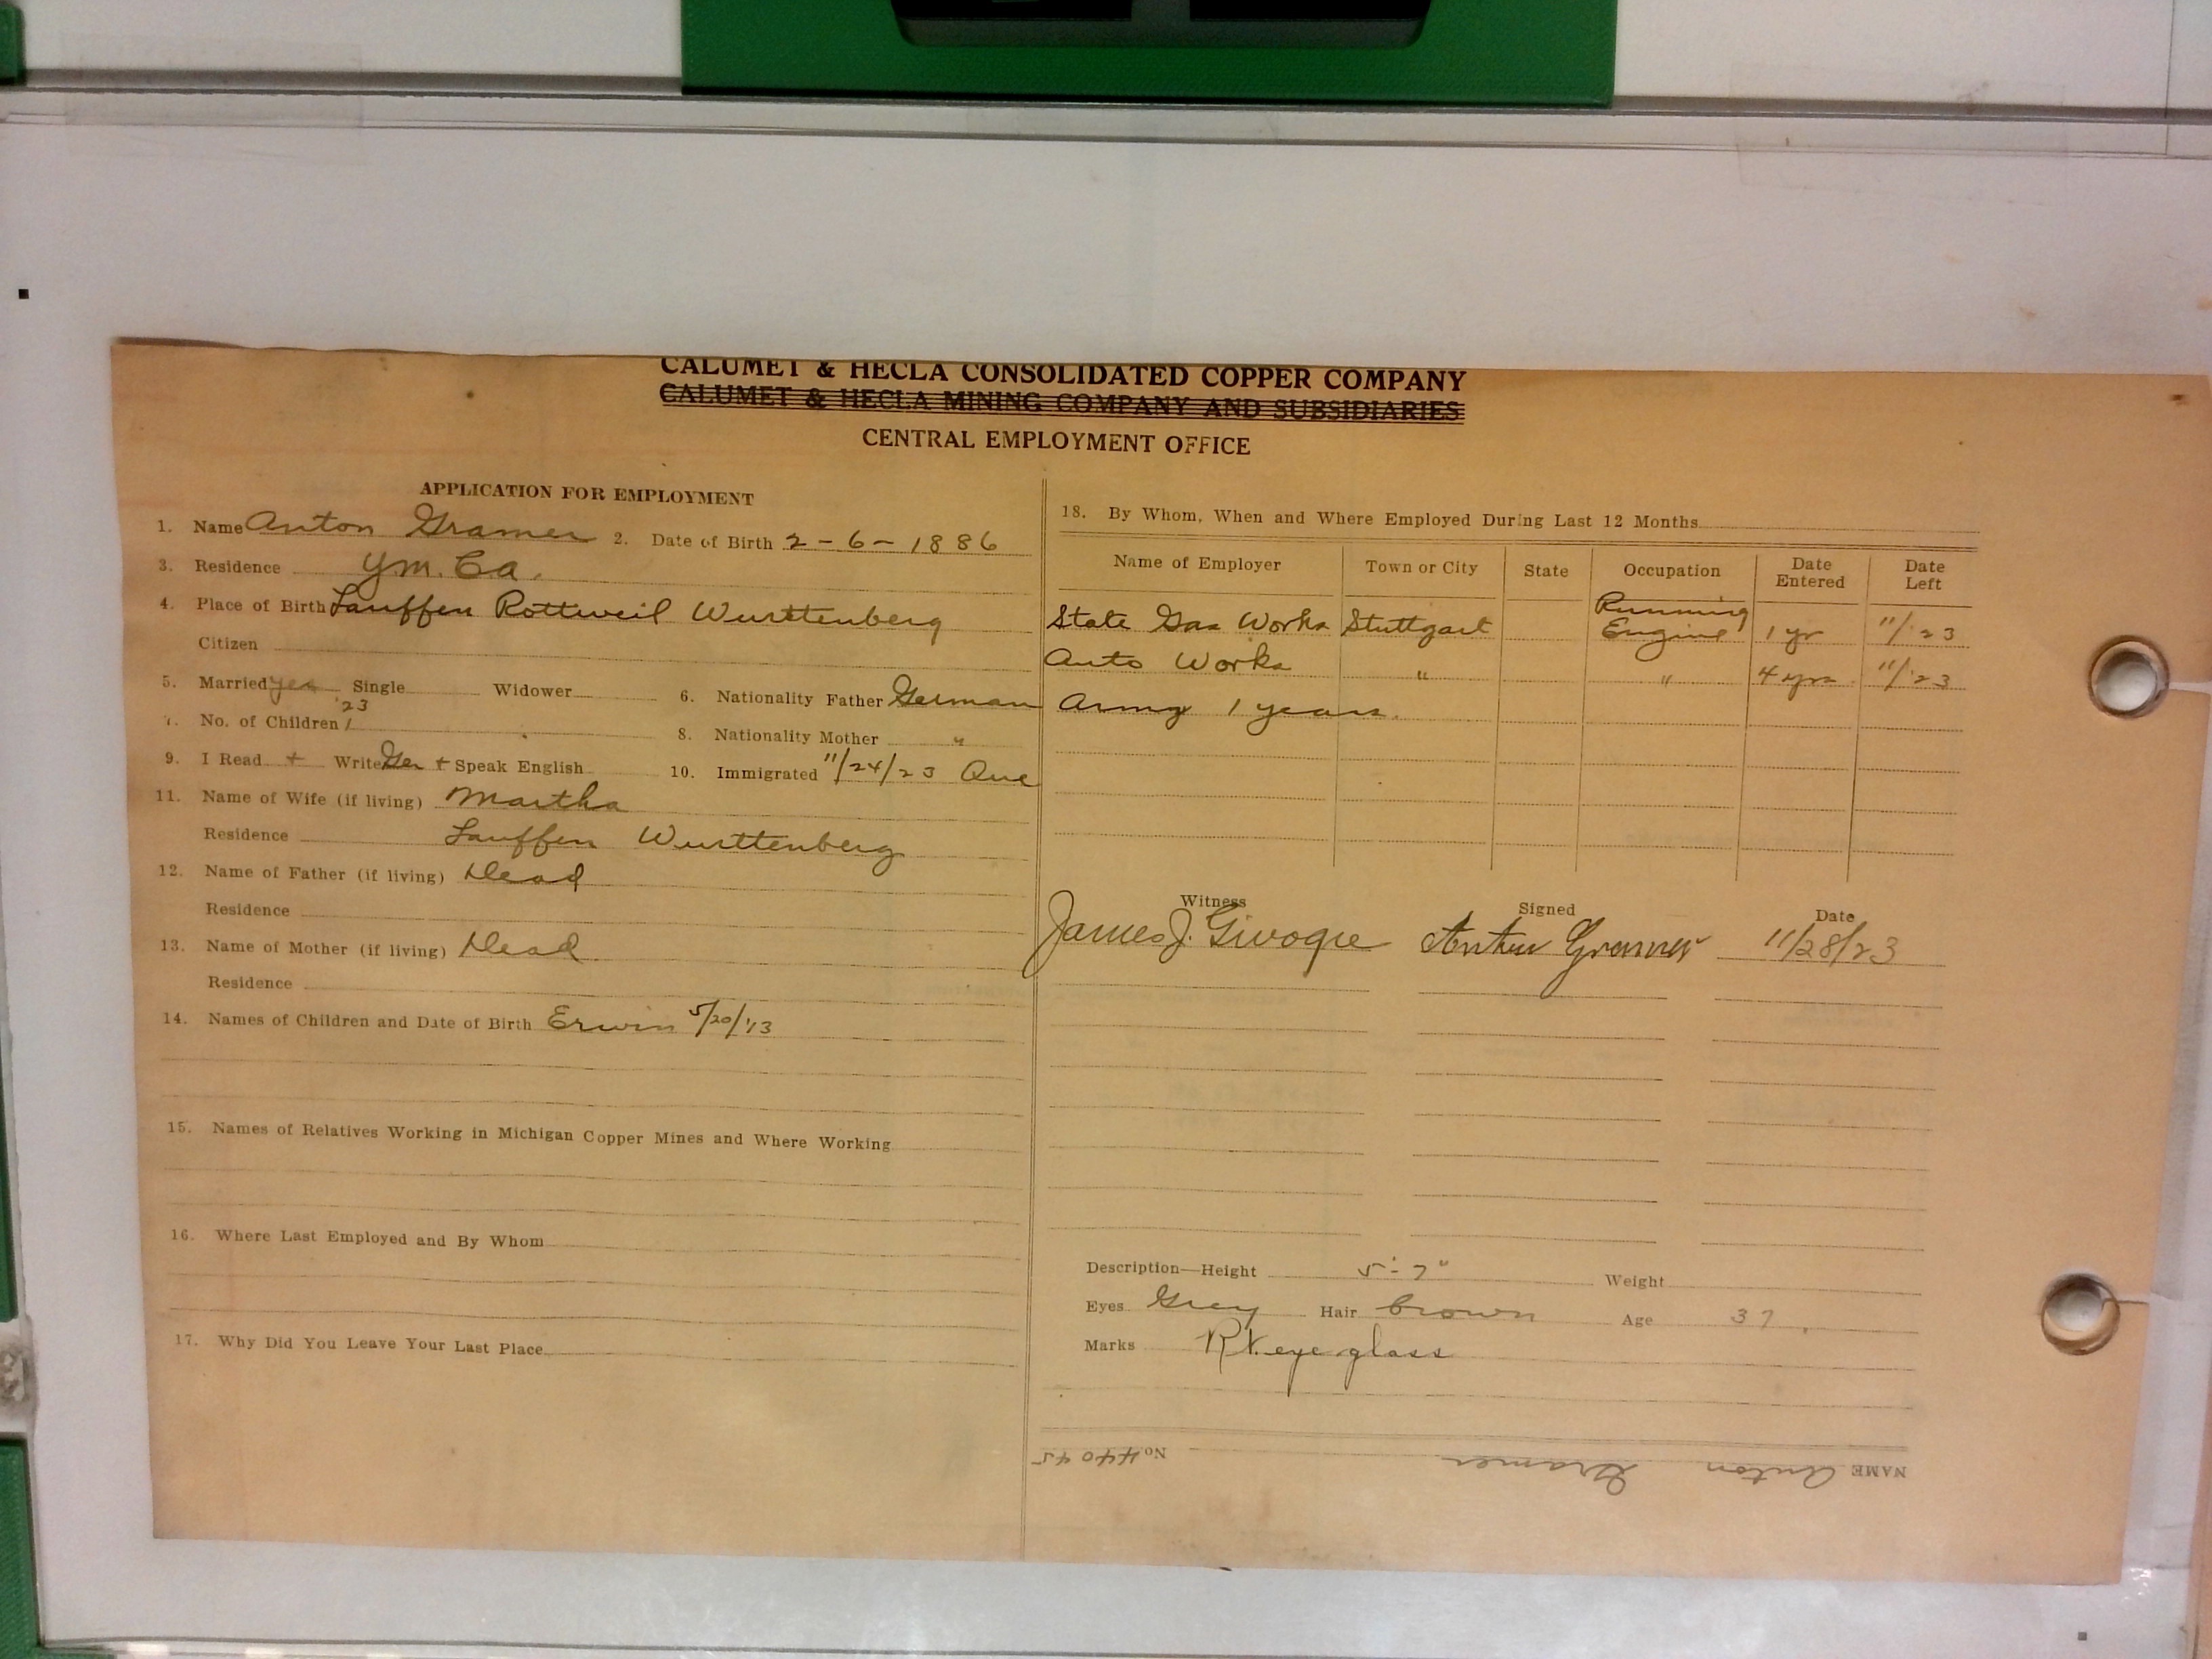 CALUMET & HECLA CONSOLIDATED COPPER COMPANY
CALUMET & HECLA MINING COMPANY AND SUBSIDIARIES
CENTRAL EMPLOYMENT OFFICE
APPLICATION FOR EMPLOYMENT
1. Name Anton Gramer 2. Date of Birth 2-6-1886
3. Residence Y.M.C.a.
4. Place of Birth Lauffen Rottweil Wurttenberg
Citizen
5. Married yes Single Widower 6. Nationality Father German
'23
7. No. of Children 1
8. Nationality Mother "
9. I Read + Write Ger + Speak English 10. Immigrated 11/24/23 Que
11. Name of Wife (if living) Martha
Residence Lauffen Wurttenberg
12. Name of Father (if living) Dead
Residence
13. Name of Mother (if living) Dead
Residence
14. Names of Children and Date of Birth Erwin 5/20/'13
15. Names of Relatives Working in Michigan Copper Mines and Where Working
16. Where Last Employed and By Whom
17. Why Did You Leave Your Last Place
18. By Whom, When and Where Employed During Last 12 Months
Name of Employer Town or City State Occupation Date Entered Date Left
State Gas Works Stuttgart Running Engine 1 yr 11/23
Auto Works " " 4 yrs 11/23
Army 1 years.
Witness Signed Date
James J. Gramer 11/28/23
Description—Height 5'-7" Weight
Eyes Grey Hair brown Age 37
Marks Rt. eye glass
NAME Anton Gramer No. 44045